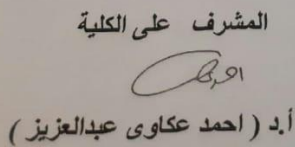 المشرف على الكلية
أ.د ( احمد عكاوى عبدالعزيز )